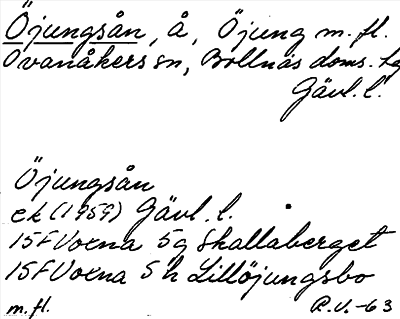 Öjungsån, å, Öjung m.fl.
Ovanåkers sn, Bollnäs doms. hg
Gävl. l.
Öjungsån
ek (1959) Gävl. l.
15F Voxna 5g Skallaberget
15F Voxna 5h Lillöjungsbo
m.fl. R.V. -63